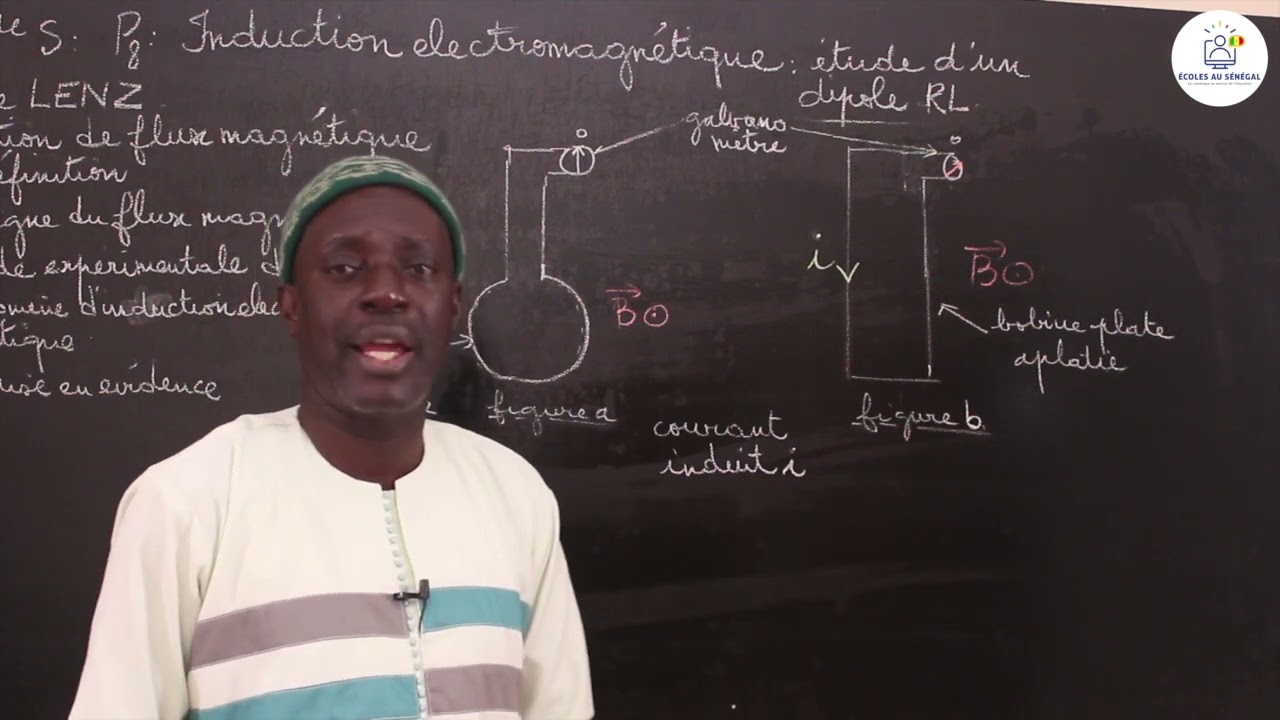 S: P8: Induction électromagnétique: étude d'un
dipôle RL
LENZ
tion de flux magnétique
éfinition
igne du flux magn
de expérimentale d
omène d'induction elec
tique
mise en evidence
galvano
mètre
0
0
B
B
i
bobine plate
aplatie
figure a
figure b
courant
induit i
ÉCOLES AU SÉNÉGAL